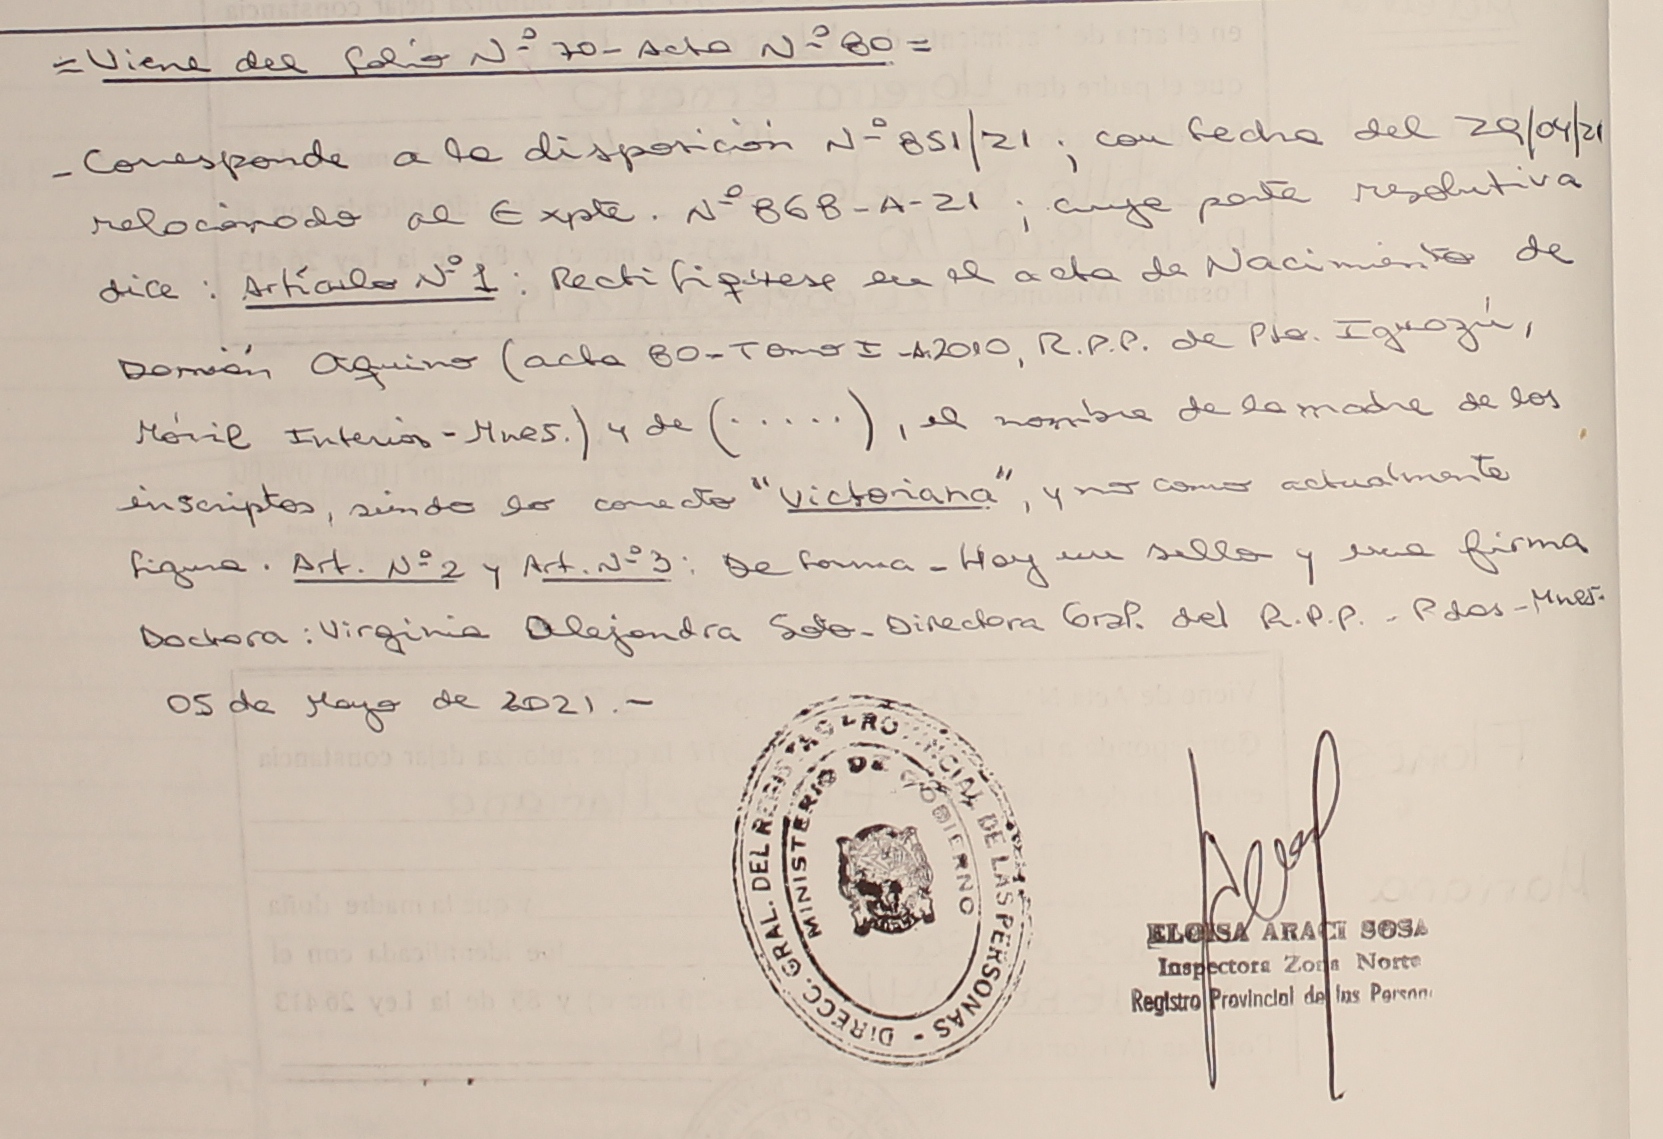 = Viene del folio Nº 70 - Acta Nº 80 =
- Corresponde a la disposición Nº 851/21; con fecha del 29/04/21
relacionado al Expte. Nº 868-A-21; cuya parte resolutiva
dice: Artículo Nº 1: Rectifiquese en el acta de Nacimiento de
Damián Aquino (acta 80-Tomo I-A.2010, R.P.P. de Pto. Iguazú,
Móvil Interior-Mnes.) y de (.....), el nombre de la madre de los
inscriptos, siendo lo correcto "Victoriana", y no como actualmente
figura. Art. Nº 2 y Art. Nº 3: De forma - Hay un sello y una firma
Doctora: Virginia Alejandra Soto - Directora Gral. del R.P.P. - Pdas - Mnes.
05 de Mayo de 2021.-
DIRECC. GRAL. DEL REGISTRO PROVINCIAL DE LAS PERSONAS -
MINISTERIO DE GOBIERNO
ELOISA ARACI SOSA
Inspectora Zona Norte
Registro Provincial de las Person